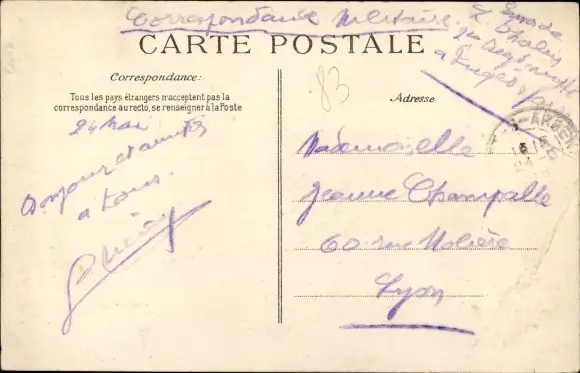 Correspondance Militaire
CARTE POSTALE
Correspondance:
Tous les pays étrangers n'acceptent pas la
correspondance au recto, se renseigner à la Poste
24 Mai
Bonjour et amitiés
a tous.
83
Adresse
Mademoiselle
Jeanne Champalle
60 rue Molière
Lyon